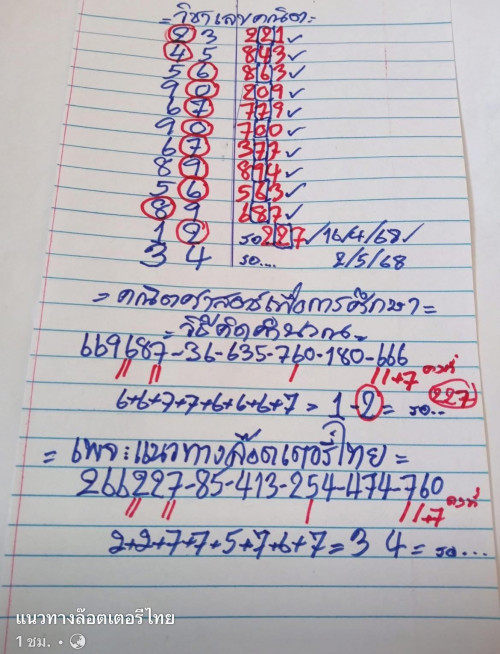 =วิชาเลขคณิต=
2 3 221✓
4 5 843✓
5 6 863✓
9 0 209✓
6 7 779✓
9 0 700✓
6 7 377✓
8 9 894✓
5 6 563✓
8 9 687✓
1 2 รอ227/16/4/68✓
3 4 รอ.... 2/5/68
=คณิตศาสตร์เพื่อการศึกษา=
=วิธีคิดคำนวณ=
669687-36-635-760-180-666
//+7 คงที่
6+6+7+7+6+6+6+7=1-2=รอ..
227
=เพจ:แนวทางล๊อตเตอรี่ไทย=
266227-85-413-254-474-760
//+7 คงที่
2+2+7+7+5+7+6+7=3 4=รอ...
แนวทางล๊อตเตอรีไทย
1 ชม. •